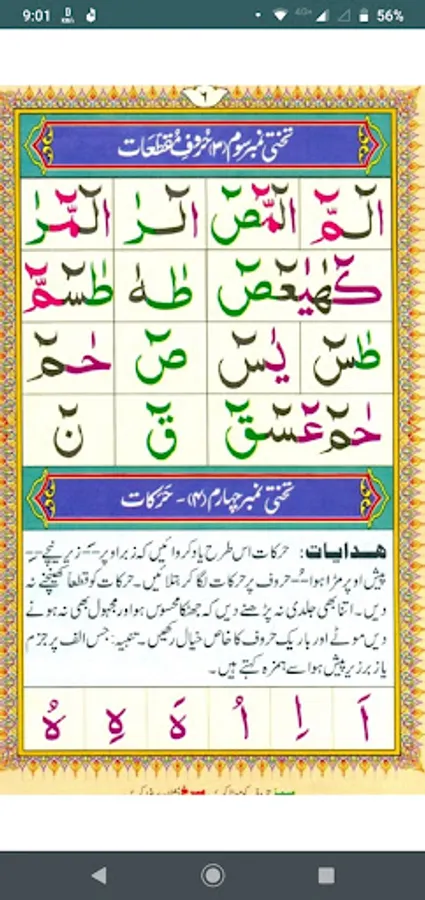 9:01
4G+
56%
٦
تختی نمبر سوم (۳) حُروفِ مُقطّعَات
الٓمّٓ الٓمّٓصٓ الٓرٰ الٓمّٓرٰ
كٓهٰيٰعٓصٓ طٰهٰ طٰسٓمّٓ
طٰسٓ يٰسٓ صٓ حٰمٓ
حٰمٓ عٓسٓقٓ قٓ نٓ
تختی نمبر چہارم (۴) - حَرَکات
ہدایات: حرکات اس طرح یاد کروائیں کہ زبر اوپر— زیر نیچے—
پیش اوپر مڑا ہوا—ُ حروف پر حرکات لگا کر بتلائیں۔ حرکات کو قطعاً کھینچنے نہ
دیں۔ اتنا بھی جلدی نہ پڑھنے دیں کہ جھٹکا محسوس ہو اور مجہول بھی نہ ہونے
دیں موٹے اور باریک حروف کا خاص خیال رکھیں۔ تنبیہ: جس الف پر جزم
یا زبر زیر پیش ہو اسے ہمزہ کہتے ہیں۔
اَ اِ اُ هَ هِ هُ